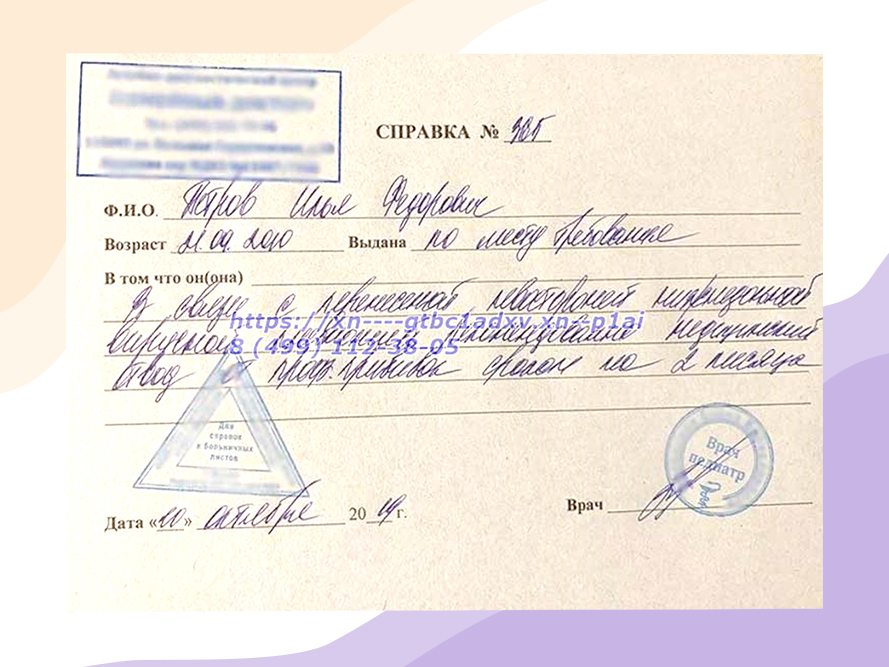 СПРАВКА №
Ф.И.О. Петров Илья Федорович
Возраст 21.09.2010 Выдана по месту требования
В том что он(она)
В связи с перенесеной левостороней
https://xn----gtbc1adxv.xn--p1ai
вирусной пневмонией рекомендовано медицинский
8 (499) 112-38-05
отвод проф.прививок сроком на 2 месяца
Для
справок
и больничных
листов
Врач
педиатр
Врач
Дата «20» октября 2019 г.